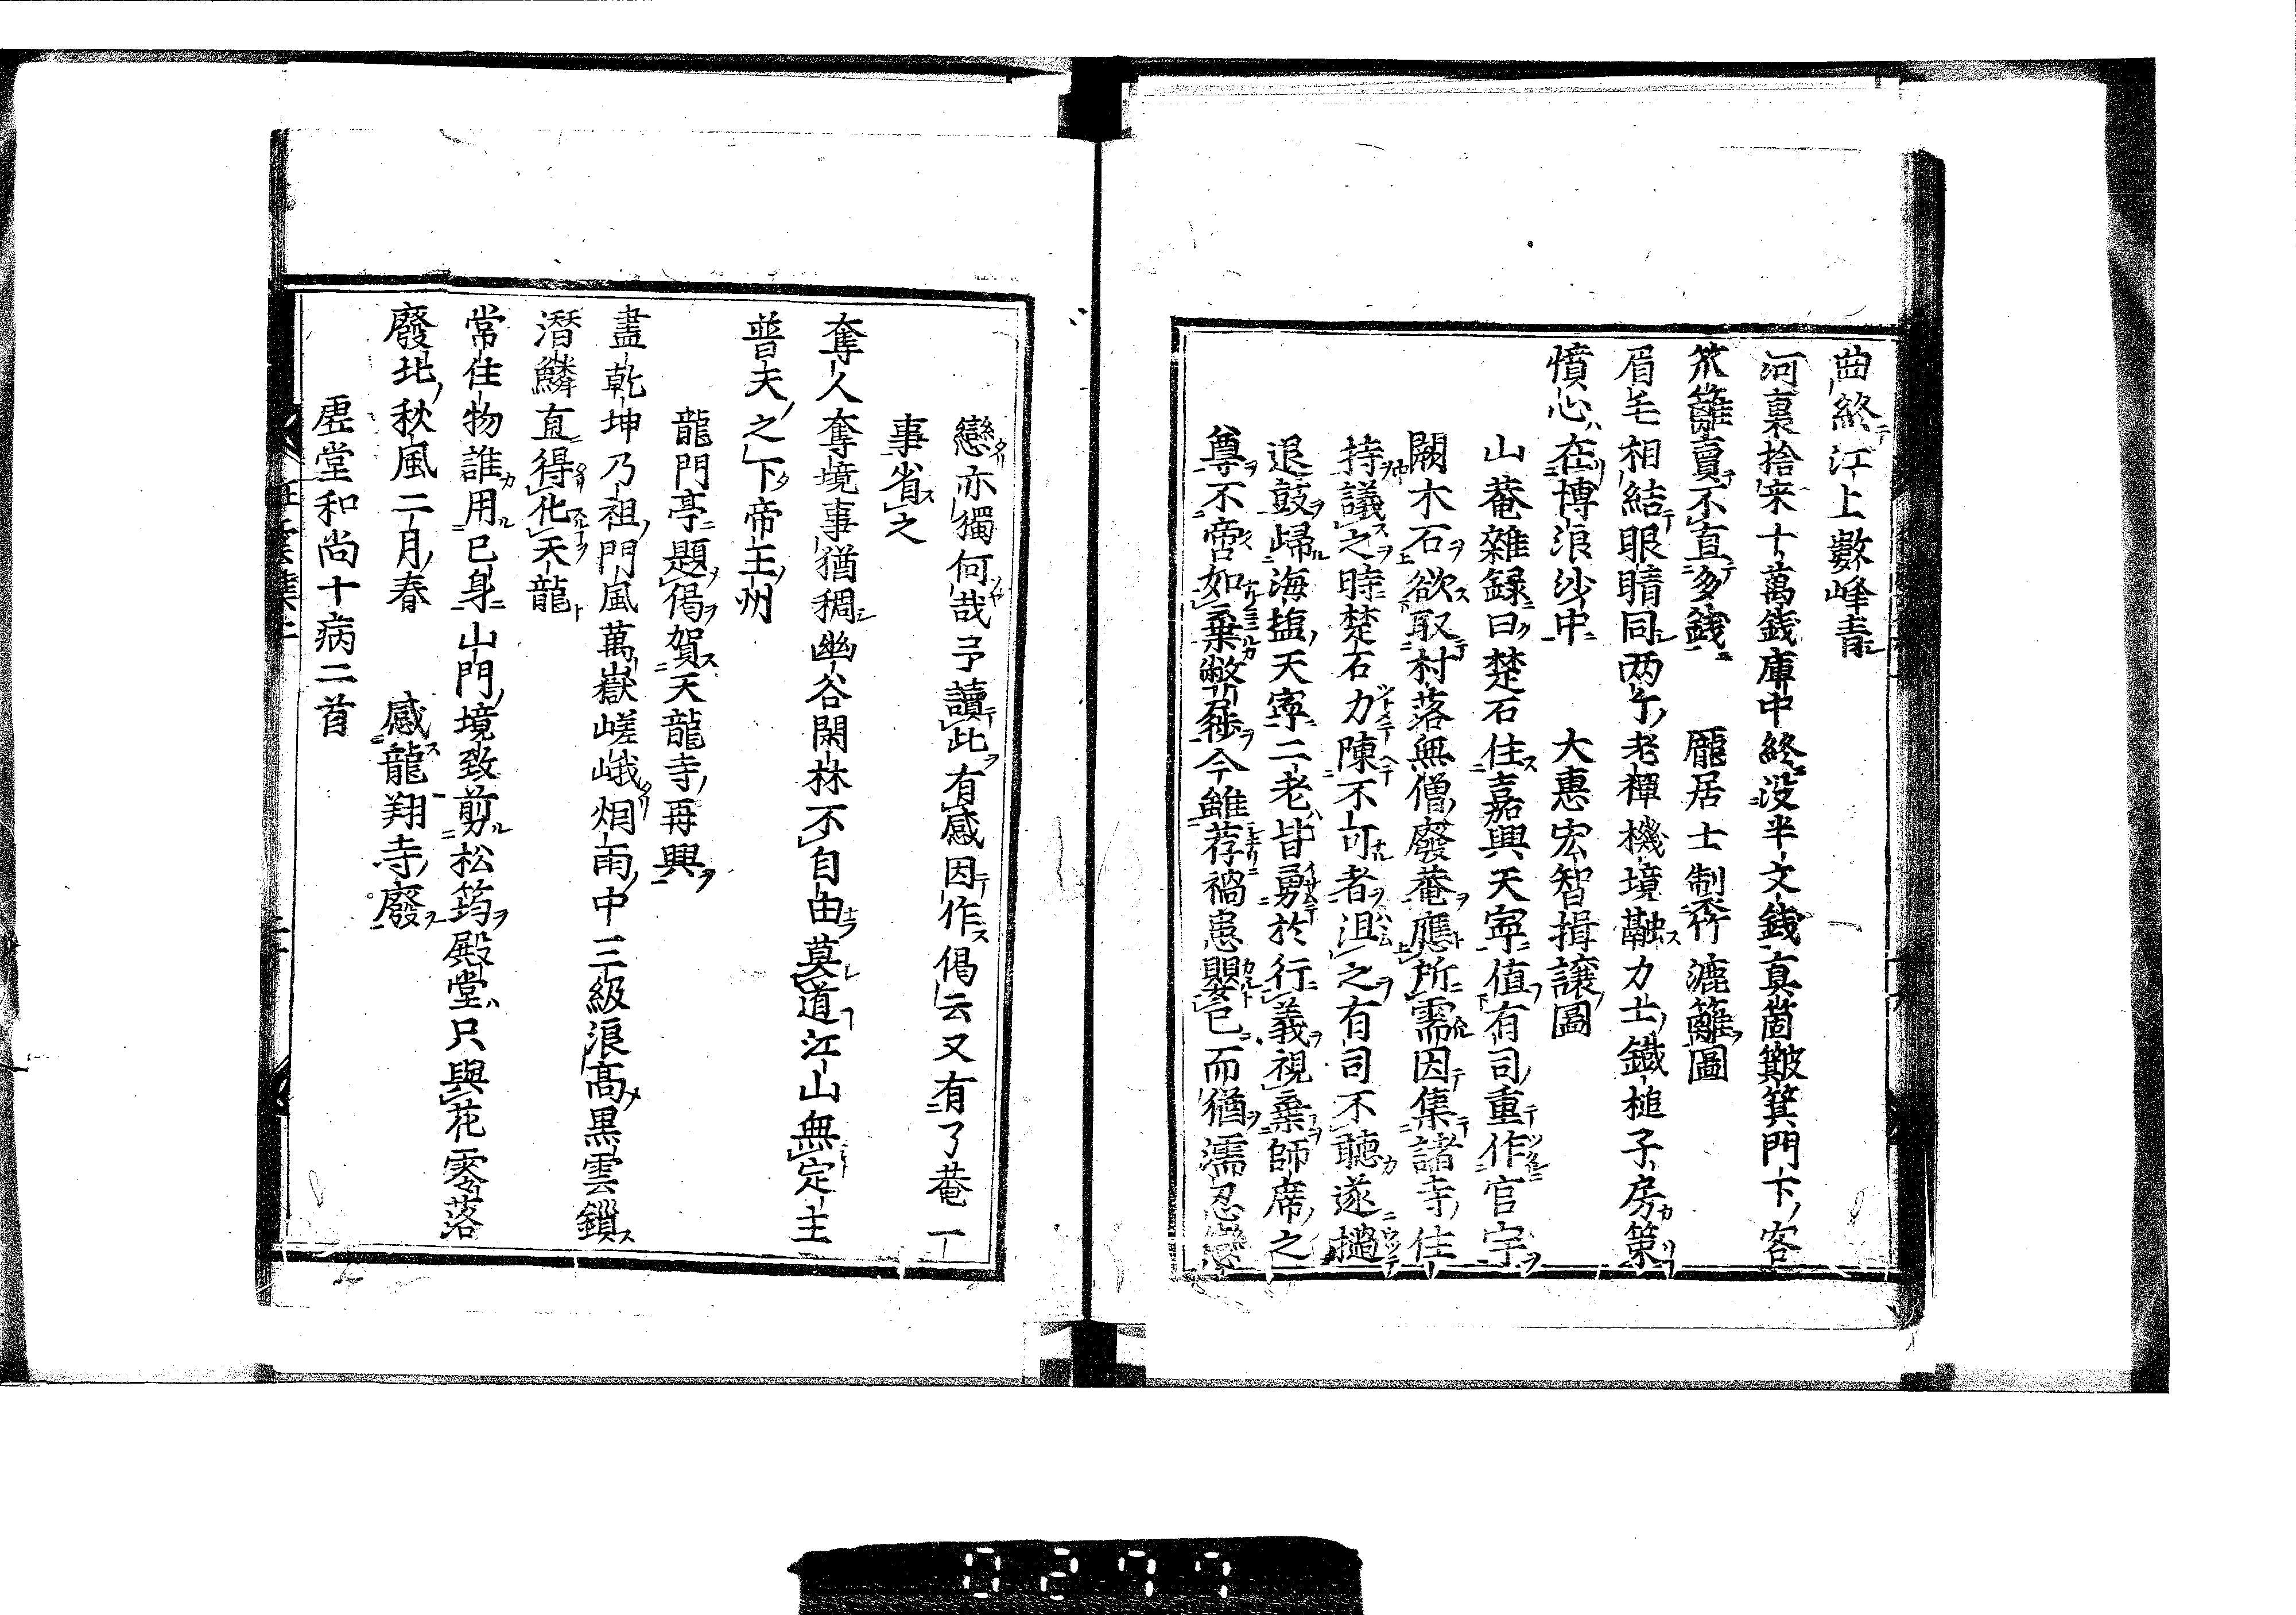 曲終江上數峰青
河裏捨来十萬錢庫中終没半文錢真箇簸箕門下客
笊籬賣不直多錢　龐居士制竹漉籬圖
眉毛相結眼睛同两个老禪機境融力士鐵槌子房策
憤心在博浪沙中　大惠宏智揖讓圖
山菴雜録曰楚石住嘉興天寧值有司重作官宇
闕木石欲取村落無僧廢菴應所需因集諸寺住
持議之時楚石力陳不可者沮之有司不聽遂撾
退鼓歸海塩天寧二老皆勇於行義視棄師席之
尊不啻如棄弊屣今雖荐禍患嬰已而猶濡忍戀
戀亦獨何哉予讀此有感因作偈云又有了菴一
事省之
奪人奪境事猶稠幽谷閑林不自由莫道江山無定主
普天之下帝王州
龍門亭題偈賀天龍寺再興
盡乾坤乃祖門風萬嶽嵯峨烟雨中三級浪高黒雲鎖
潛鱗直得化天龍
常住物誰用已身山門境致剪松筠殿堂只與花零落
廢北秋風二月春　感龍翔寺廢
虚堂和尚十病二首
狂雲集上
0299